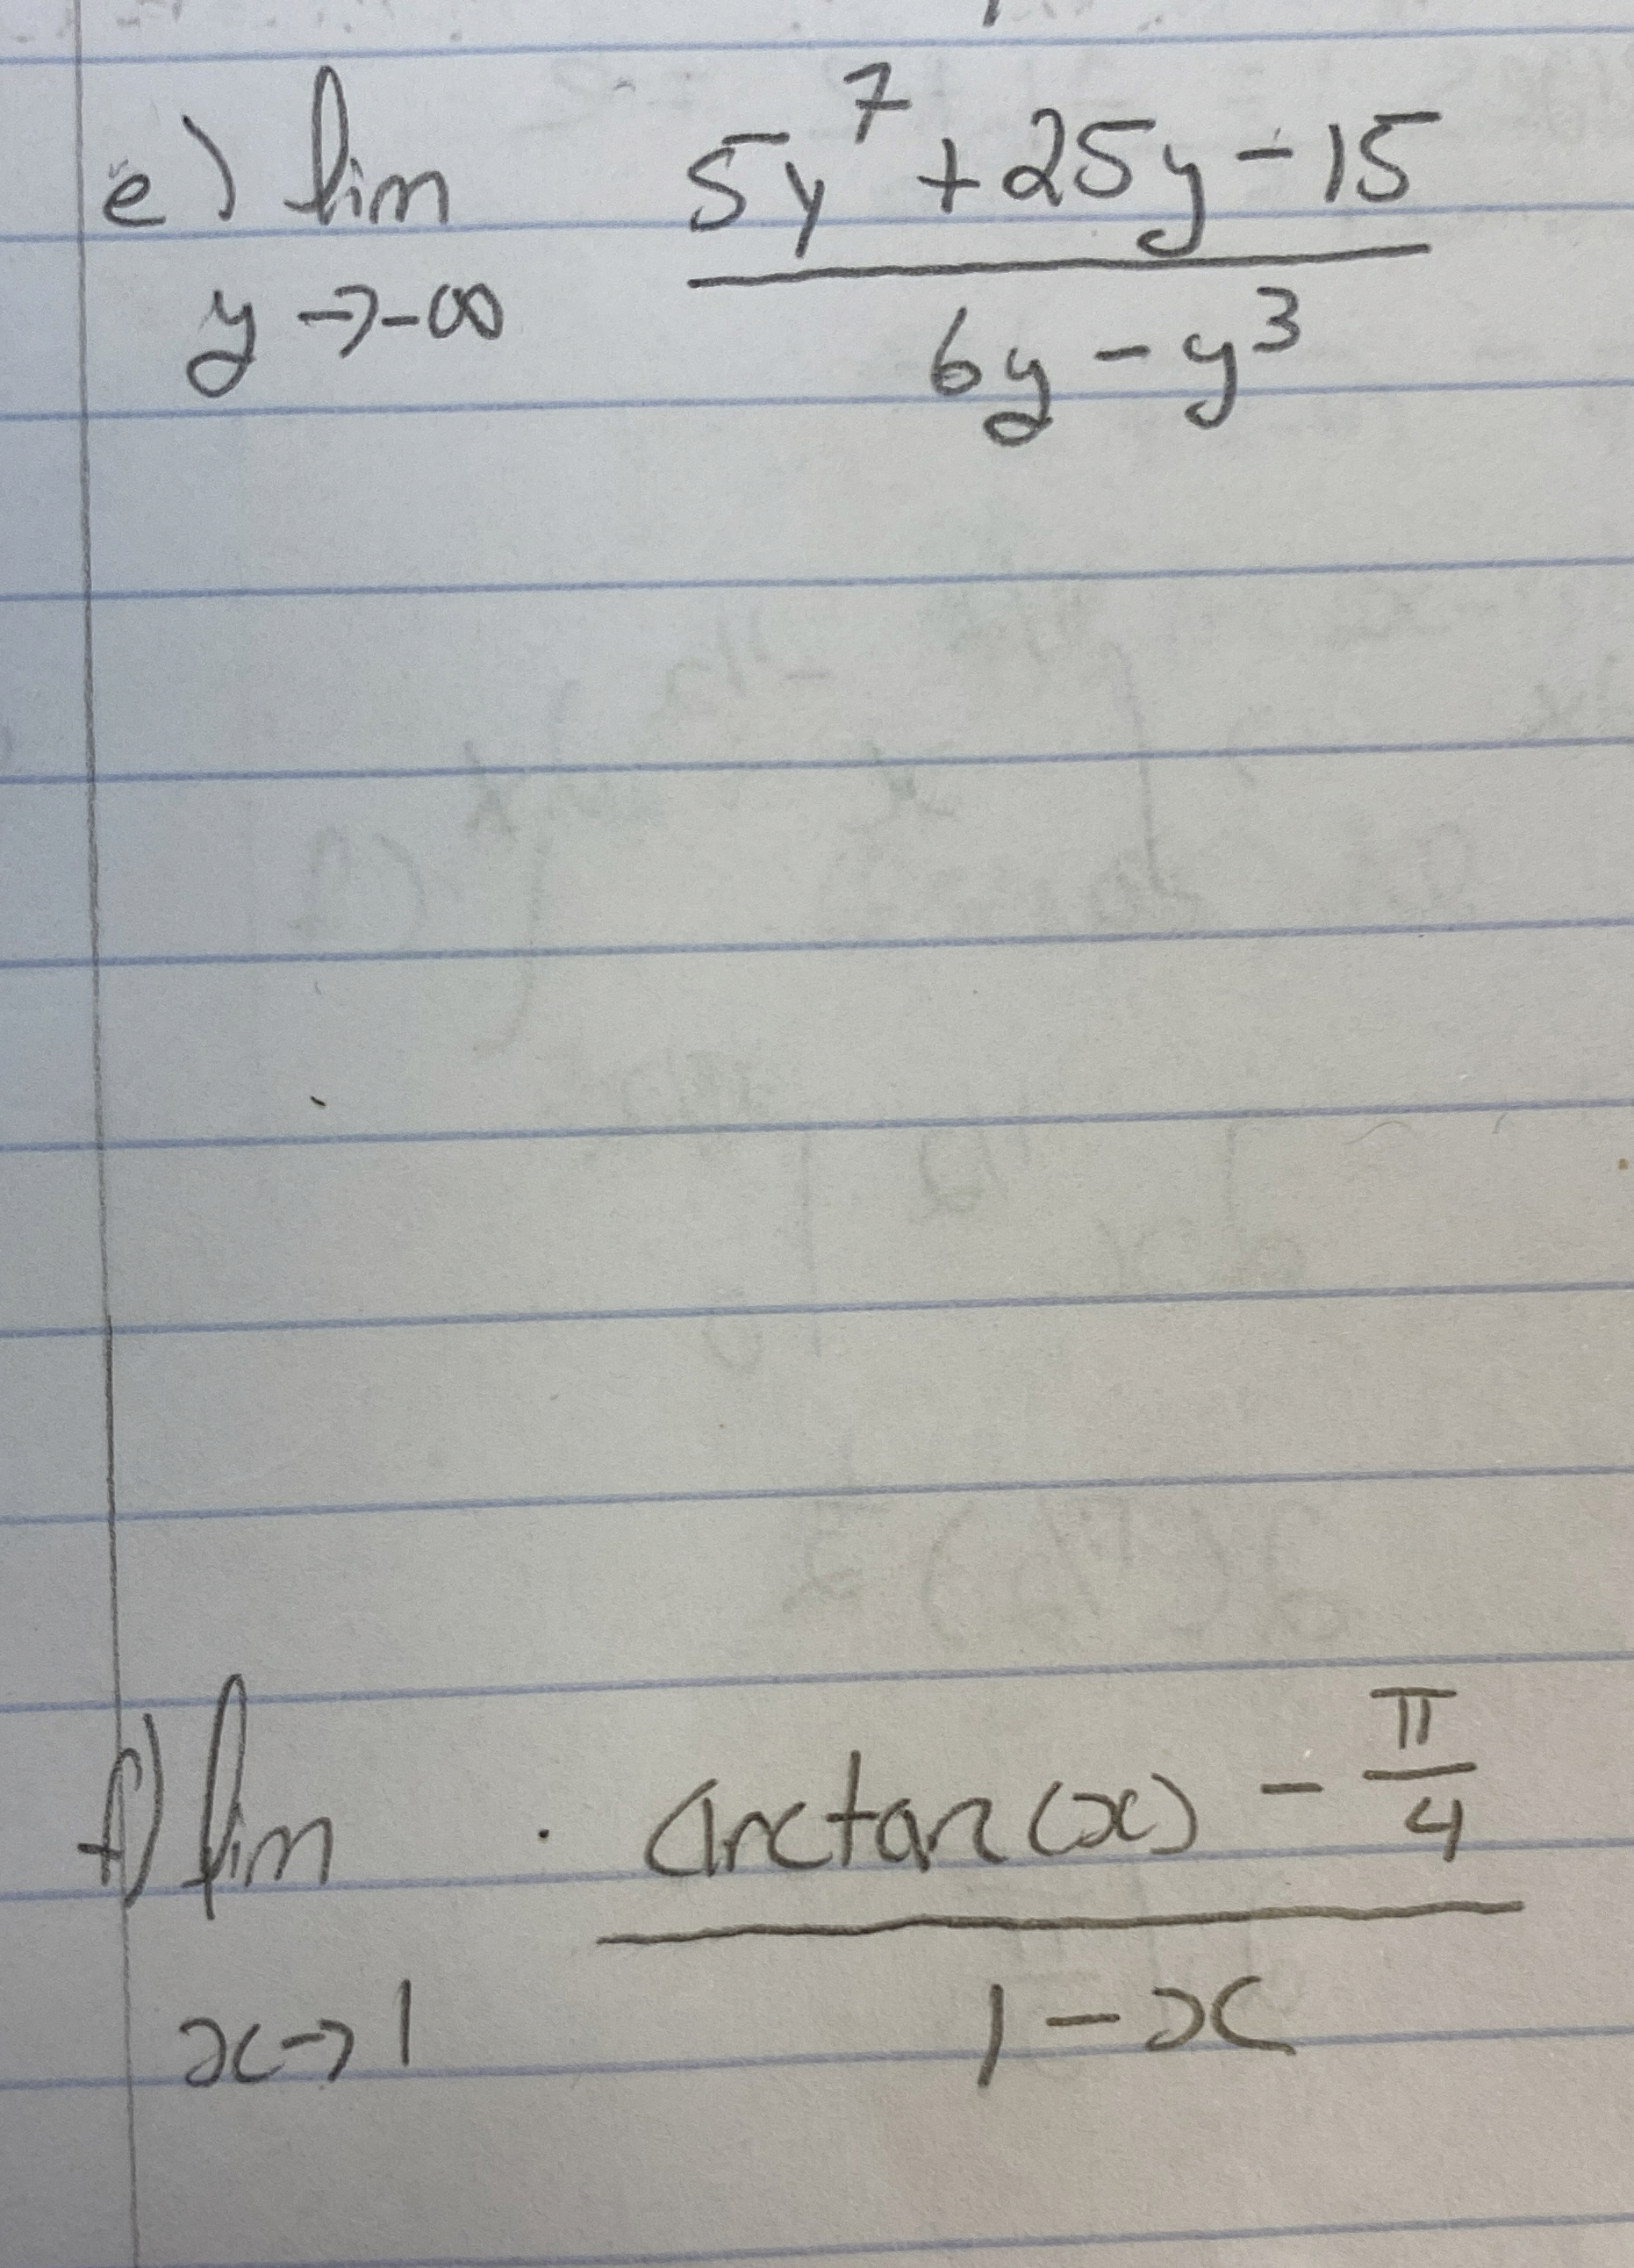 e) lim 5y⁷ + 25y - 15
y → -∞ 6y - y³
f) lim arctan(x) - π/4
x → 1 1 - x